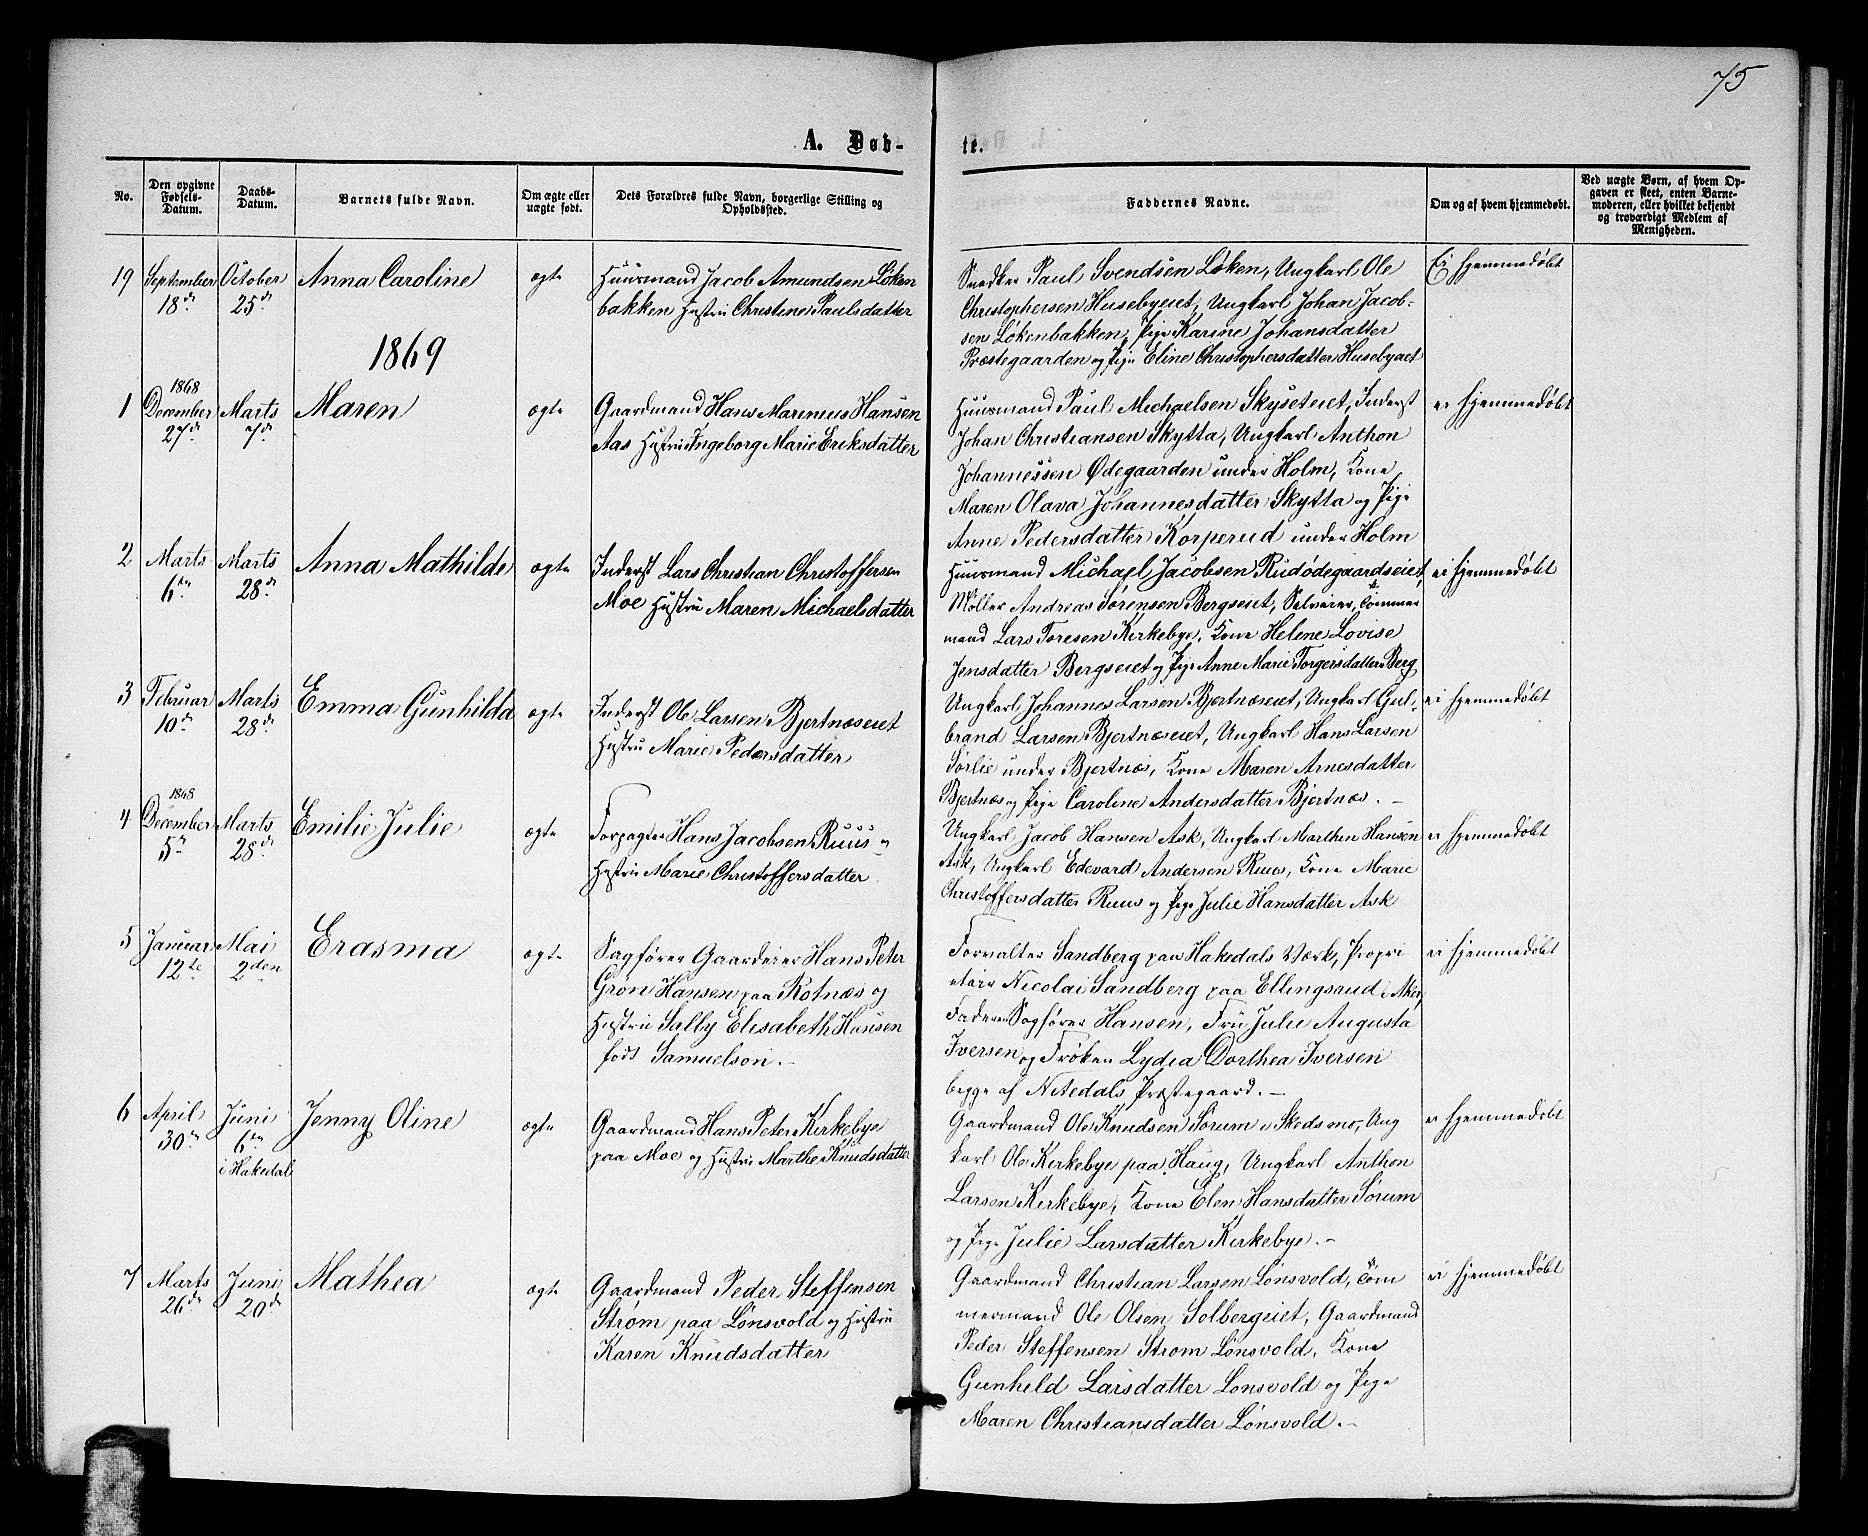 75
A. Døb-
te.
No.
Den opgivne Fødsels-Datum.
Daabs-Datum.
Barnets fulde Navn.
Om ægte eller uægte født.
Dets Forældres fulde Navn, borgerlige Stilling og Opholdssted.
Faddernes Navne.
Om og af hvem hjemmedøbt.
Ved uægte Børn, af hvem Opgaven er skeet, enten Barnemoderen, eller hvilket bekjendt og troværdigt Medlem af Menigheden.
19
September 18de
October 25de
Anna Caroline
ægte
Huusmand Jacob Amundsen Løken
bakken Hustru Christine Paulsdatter
Snedker Paul Svendsen Løken, Ungkarl Ole
Christophersen Husebyeiet, Ungkarl Johan Jacob-
sen Løkenbakken, Pige Karine Johansdatter
Præstegaarden og Pige Eline Christophersdatter Husebyeiet
Ei hjemmedøbt
1869
1
1868
December 27de
Marts 7de
Maren
ægte
Gaardmand Hans Marinius Hansen
Aas Hustru Ingeborg Marie Eriksdatter
Huusmand Paul Michaelsen Skyseteiet, Inderst
Johan Christiansen Skytta, Ungkarl Anthon
Johannessen Ødegaarden under Holm, Kone
Maren Olava Johannesdatter Skytta og Pige
Anne Pedersdatter Korperud under Holm
ei hjemmedøbt
2
Marts 6te
Marts 28de
Anna Mathilde
ægte
Inderst Lars Christian Christoffersen
Moe Hustru Maren Michaelsdatter
Huusmand Michael Jacobsen Rudødegaardseiet,
Møller Andreas Sørensen Bergseiet, Selveier, Tømmer
mand Lars Toresen Kirkebye, Kone Helene Lovise
Jensdatter Bergseiet og Pige Anne Marie Torgersdatter Berg
ei hjemmedøbt
3
Februar 10de
Marts 28de
Emma Gunhilda
ægte
Inderst Ole Larsen Bjertnæseiet
Hustru Marie Pedersdatter
Ungkarl Johannes Larsen Bjertnæseiet, Ungkarl Gul-
brand Larsen Bjertnæseiet, Ungkarl Hans Larsen
Sørlie under Bjertnæs, Kone Maren Arnesdatter
Bjertnæs og Pige Caroline Andersdatter Bjertnæs. -
ei hjemmedøbt
4
1868
December 5te
Marts 28de
Emilie Julie
ægte
Forpagter Hans Jacobsen Ruus og
Hustru Marie Christoffersdatter
Ungkarl Jacob Hansen Ask, Ungkarl Marthen Hansen
Ask, Ungkarl Edevard Andersen Ruus, Kone Marie
Christoffersdatter Ruus og Pige Julie Hansdatter Ask
ei hjemmedøbt
5
Januar 12te
Mai 2den
Erasma
ægte
Sagfører Gaardeier Hans Peter
Grøn Hansen paa Rotnæs og
Hustru Sally Elisabeth Hansen
født Samuelson. -
Forvalter Sandberg paa Hakedals Værk, Propri
etair Nicolai Sandberg paa Ellingsrud i Aker,
Faderen Sagfører Hansen, Fru Julie Augusta
Iversen og Frøken Lydia Dorthea Iversen
begge af Nitedals Præstegaard. -
ei hjemmedøbt
6
April 30te
Juni 6te
i Hakedal
Jenny Oline
ægte
Gaardmand Hans Peter Kirkebye
paa Moe og Hustru Marthe Knudsdatter
Gaardmand Ole Knudsen Sørum i Skedsmo, Ung
karl Ole Kirkebye paa Haug, Ungkarl Anthon
Larsen Kirkebye, Kone Elen Hansdatter Sørum
og Pige Julie Larsdatter Kirkebye. -
ei hjemmedøbt
7
Marts 26de
Juni 20de
Mathea
ægte
Gaardmand Peder Steffensen
Strøm paa Lønsvold og Hustru
Karen Knudsdatter
Gaardmand Christian Larsen Lønsvold, Tøm
mermand Ole Olsen Solbergeiet, Gaardmand
Peder Steffensen Strøm Lønsvold, Kone
Gunhild Larsdatter Lønsvold og Pige
Maren Christiansdatter Lønsvold. -
ei hjemmedøbt